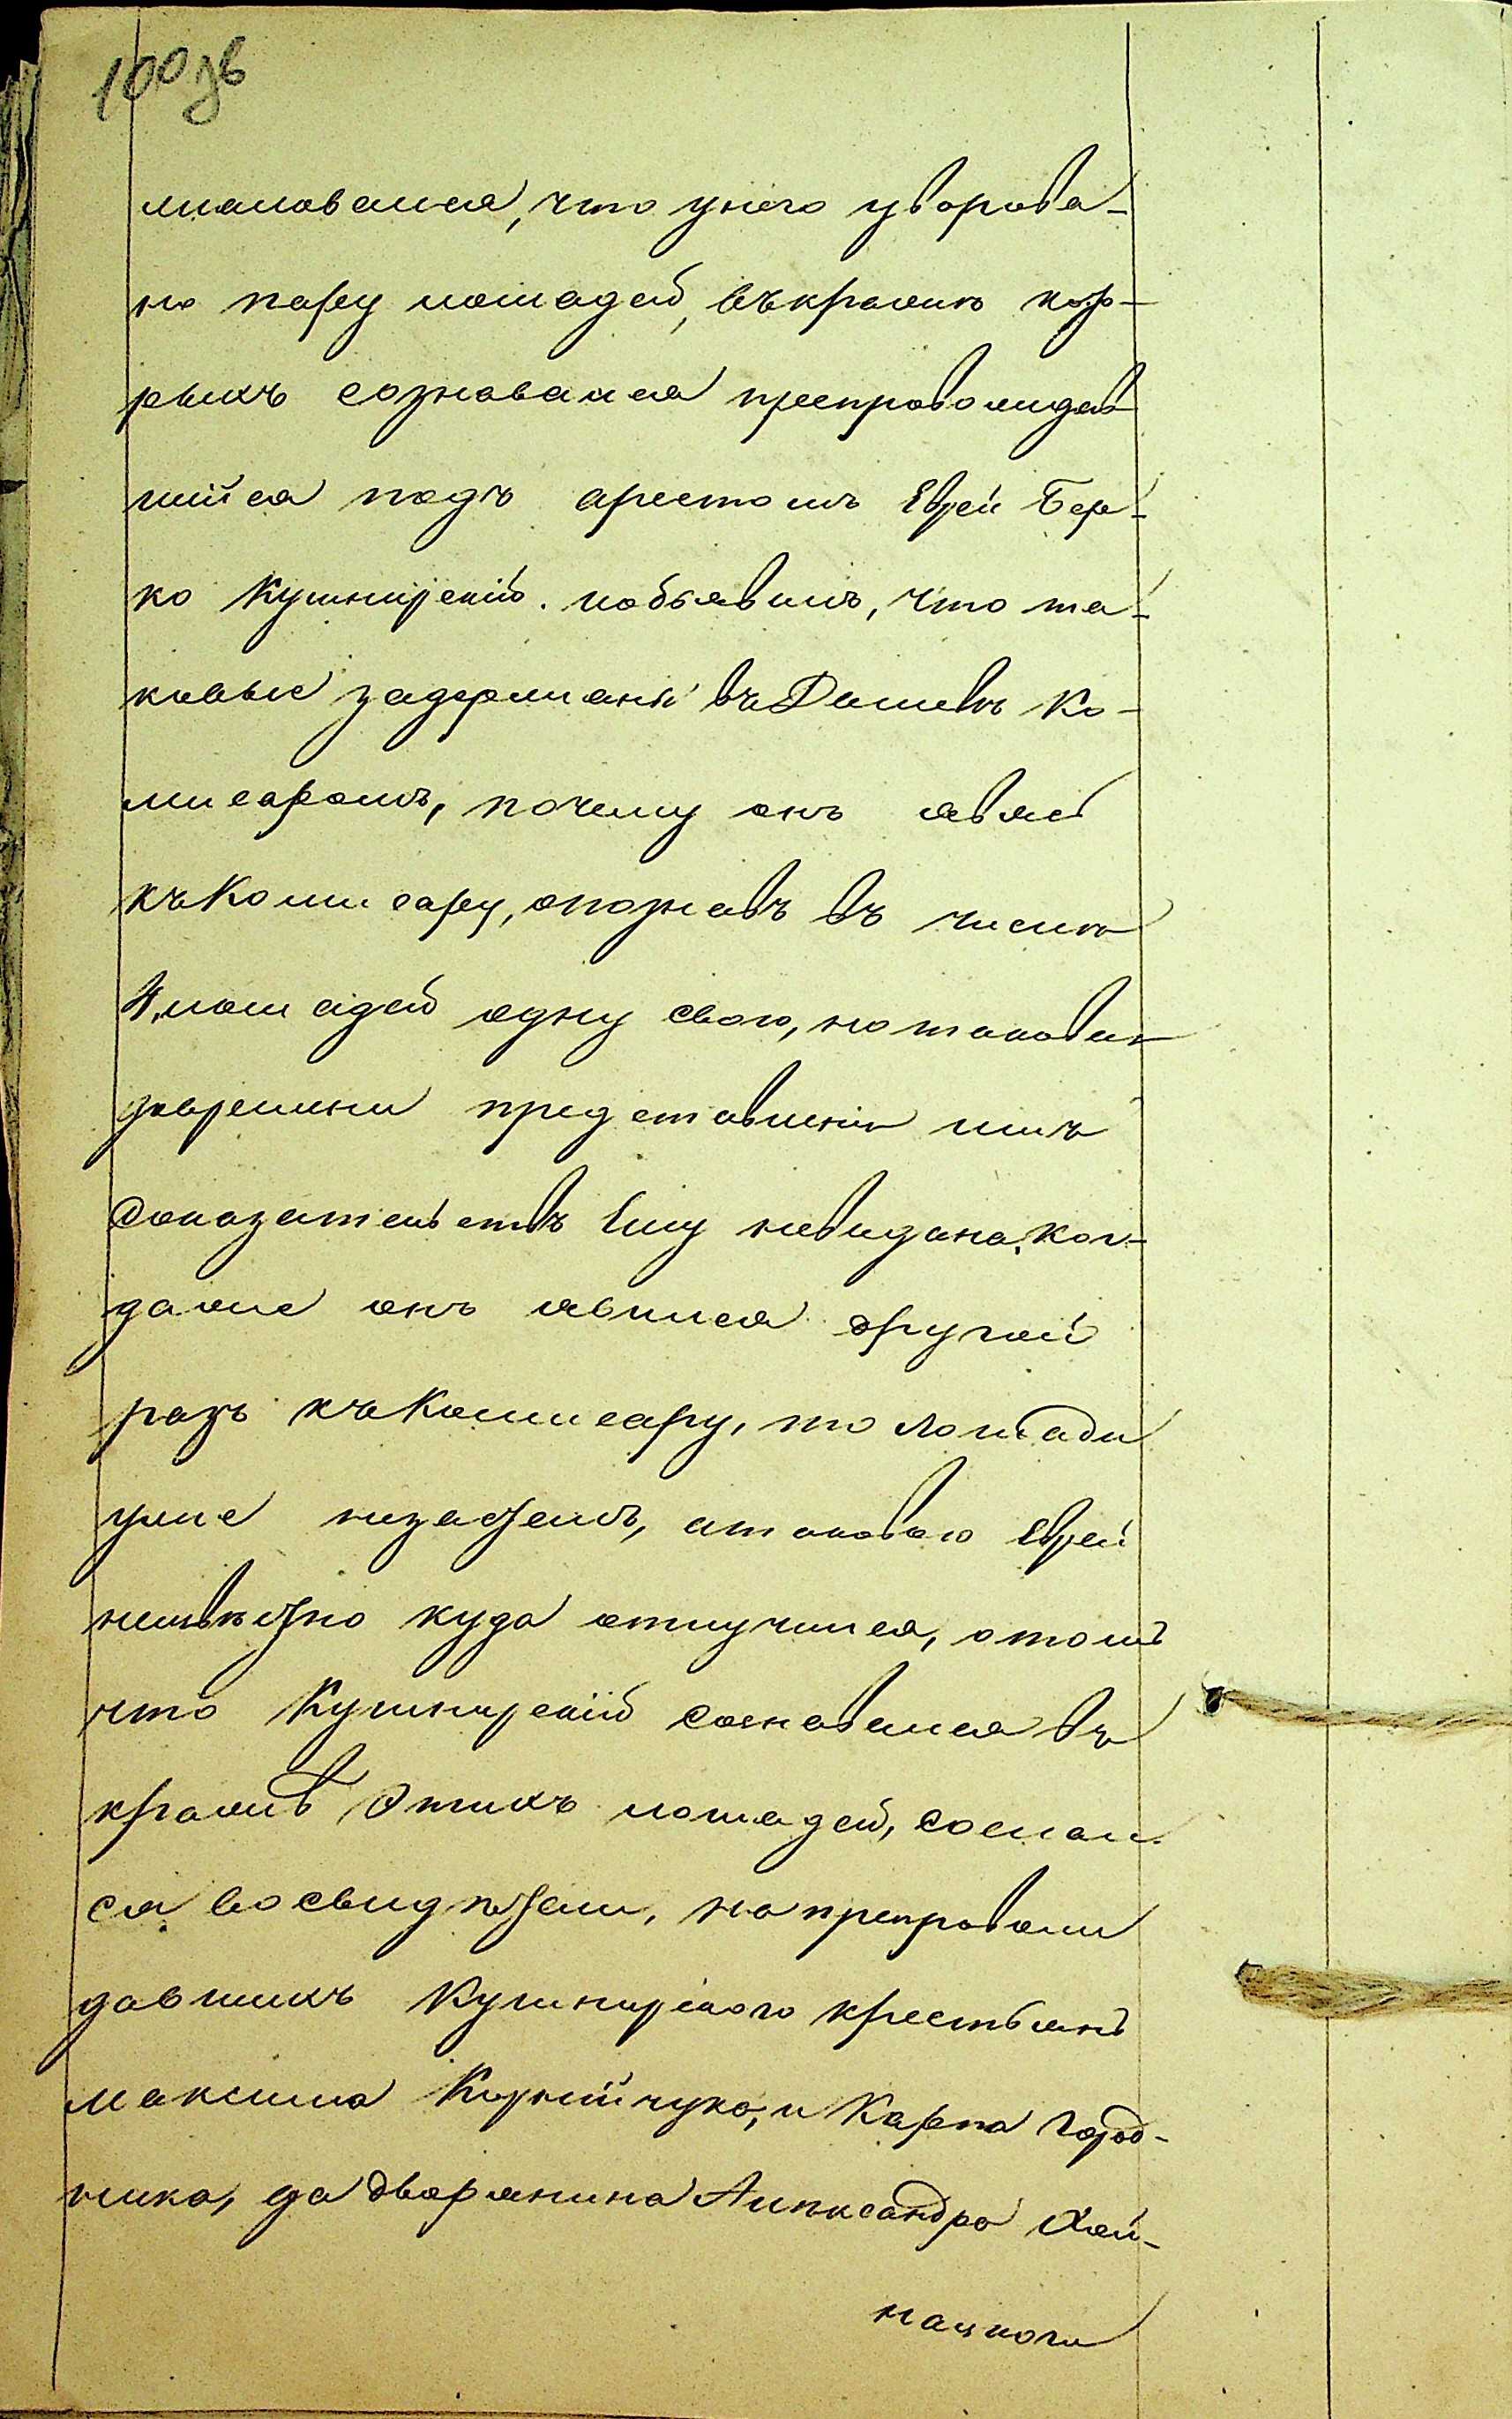 100 зв
жаловался, что унего уворова-
но пару лошадей, въкражѣ кор-
рыхъ сознавался препровождав
шійся подъ арестомъ Еврей Бер-
ко Кушнирскій. иобъявилъ, что та-
ковые задержаны въ Дашевѣ Ко-
мисаромъ, почему онъ
къ Коммисару, опознавъ въ числѣ
4. лошадей одну свою, но таковая
довремени представленія имъ
доказательствъ Ему невыдана. Ког-
даже онъ явился другой
разъ къ Коммисару, то лошади
уже незасталъ, атаковаго Еврей
неизвѣстно куда отлучился, отомъ
что Кушнирскій сознавался въ
кражѣ этихъ лошадей, сослал-
ся восвидѣтели, на препровож
давшихъ Кушнирскаго крестьянъ
Максима Корнійчука, и Карпа Город-
ника, да дворянина Александра Хай-
нацкого